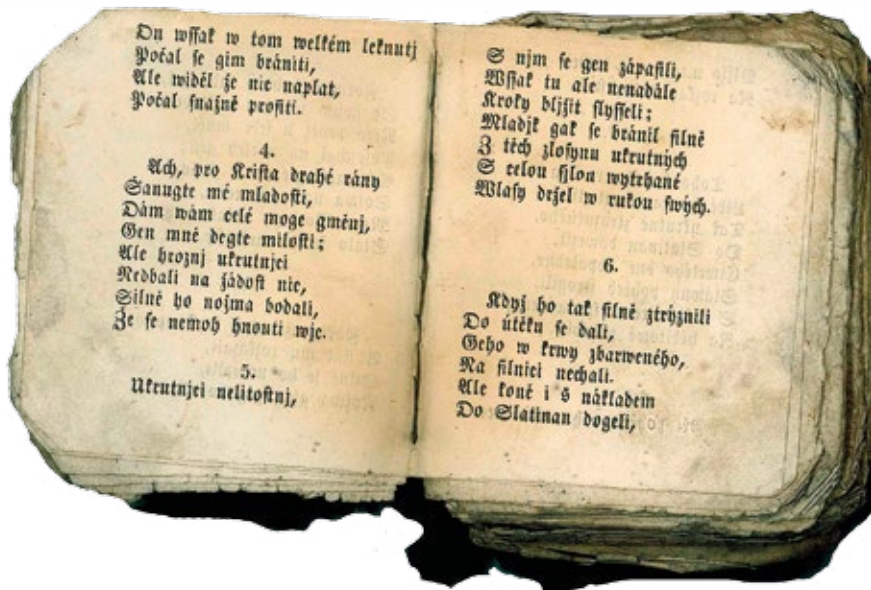 On wſſak w tom welkém leknutj
Počal ſe gim brániti,
Ale widěl že nic naplat,
Počal ſnažně proſiti.
4.
Ach, pro Kriſta drahé rány
Šanugte mé mladoſti,
Dám wám celé moge gměnj,
Gen mně degte miloſti;
Ale hroznj ukrutnjci
Nedbali na žádoſt nic,
Silně ho nojma bodali,
Že ſe nemoh hnouti wjc.
5.
Ukrutnjci nelitoſtnj,
S njm ſe gen zápaſili,
Wſſak tu ale nenadále
Kroky bljžit ſlyſſeli;
Mladjk gak ſe bránil ſilně
Z těch zloſynu ukrutných
S celou ſjlou wytrhané
Wlaſy držel w rukou ſwých.
6.
Když ho tak ſilně ztrýznili
Do útěku ſe dali,
Geho w krwy zbarweného,
Na ſilnici nechali.
Ale koně i s nákladem
Do Slatinan dogeli,